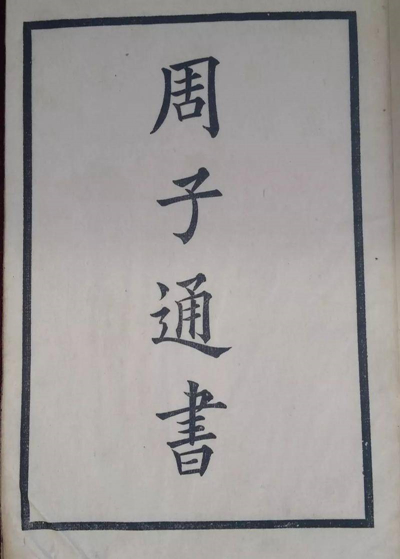 周子通書